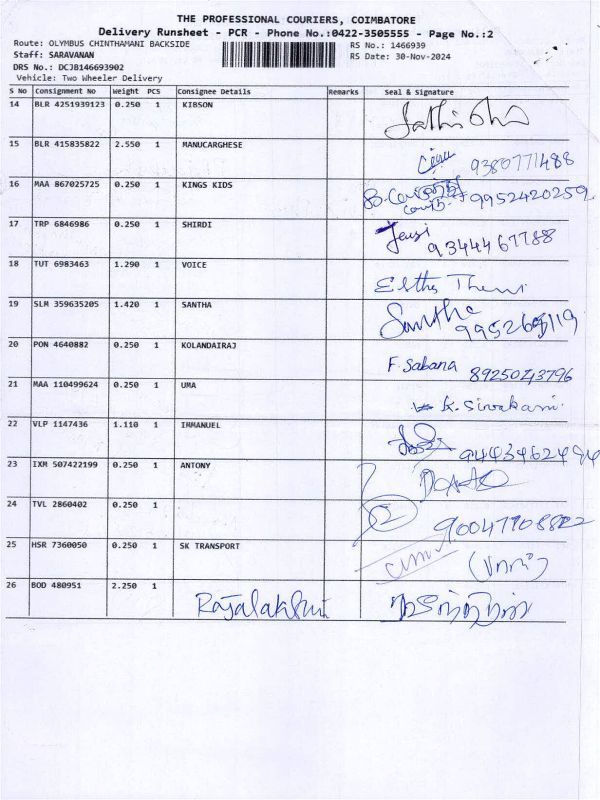 THE PROFESSIONAL COURIERS, COIMBATORE
Delivery Runsheet - PCR - Phone No.:0422-3505555 - Page No.:2
Route: OLYMBUS CHINTHAMANI BACKSIDE RS No.: 1466939
Staff: SARAVANAN RS Date: 30-Nov-2024
DRS No.: DCJB146693902
Vehicle: Two Wheeler Delivery
S No Consignment No Weight PCS Consignee Details Remarks Seal & Signature
14 BLR 4251939123 0.250 1 KIBSON
15 BLR 415835822 2.550 1 MANUCARGHESE
9380771488
16 MAA 867025725 0.250 1 KINGS KIDS
9952420259
17 TRP 6846986 0.250 1 SHIRDI
9344467788
18 TUT 6983463 1.290 1 VOICE
19 SLM 359635205 1.420 1 SANTHA Santha
20 PON 4640882 0.250 1 KOLANDAIRAJ
F. Sabana 8925043796
21 MAA 110499624 0.250 1 UMA
K. Sivakami
22 VLP 1147436 1.110 1 IMMANUEL
23 IXM 507422199 0.250 1 ANTONY
24 TVL 2860402 0.250 1
25 HSR 7360050 0.250 1 SK TRANSPORT
26 BOD 480951 2.250 1 Rajalakshmi